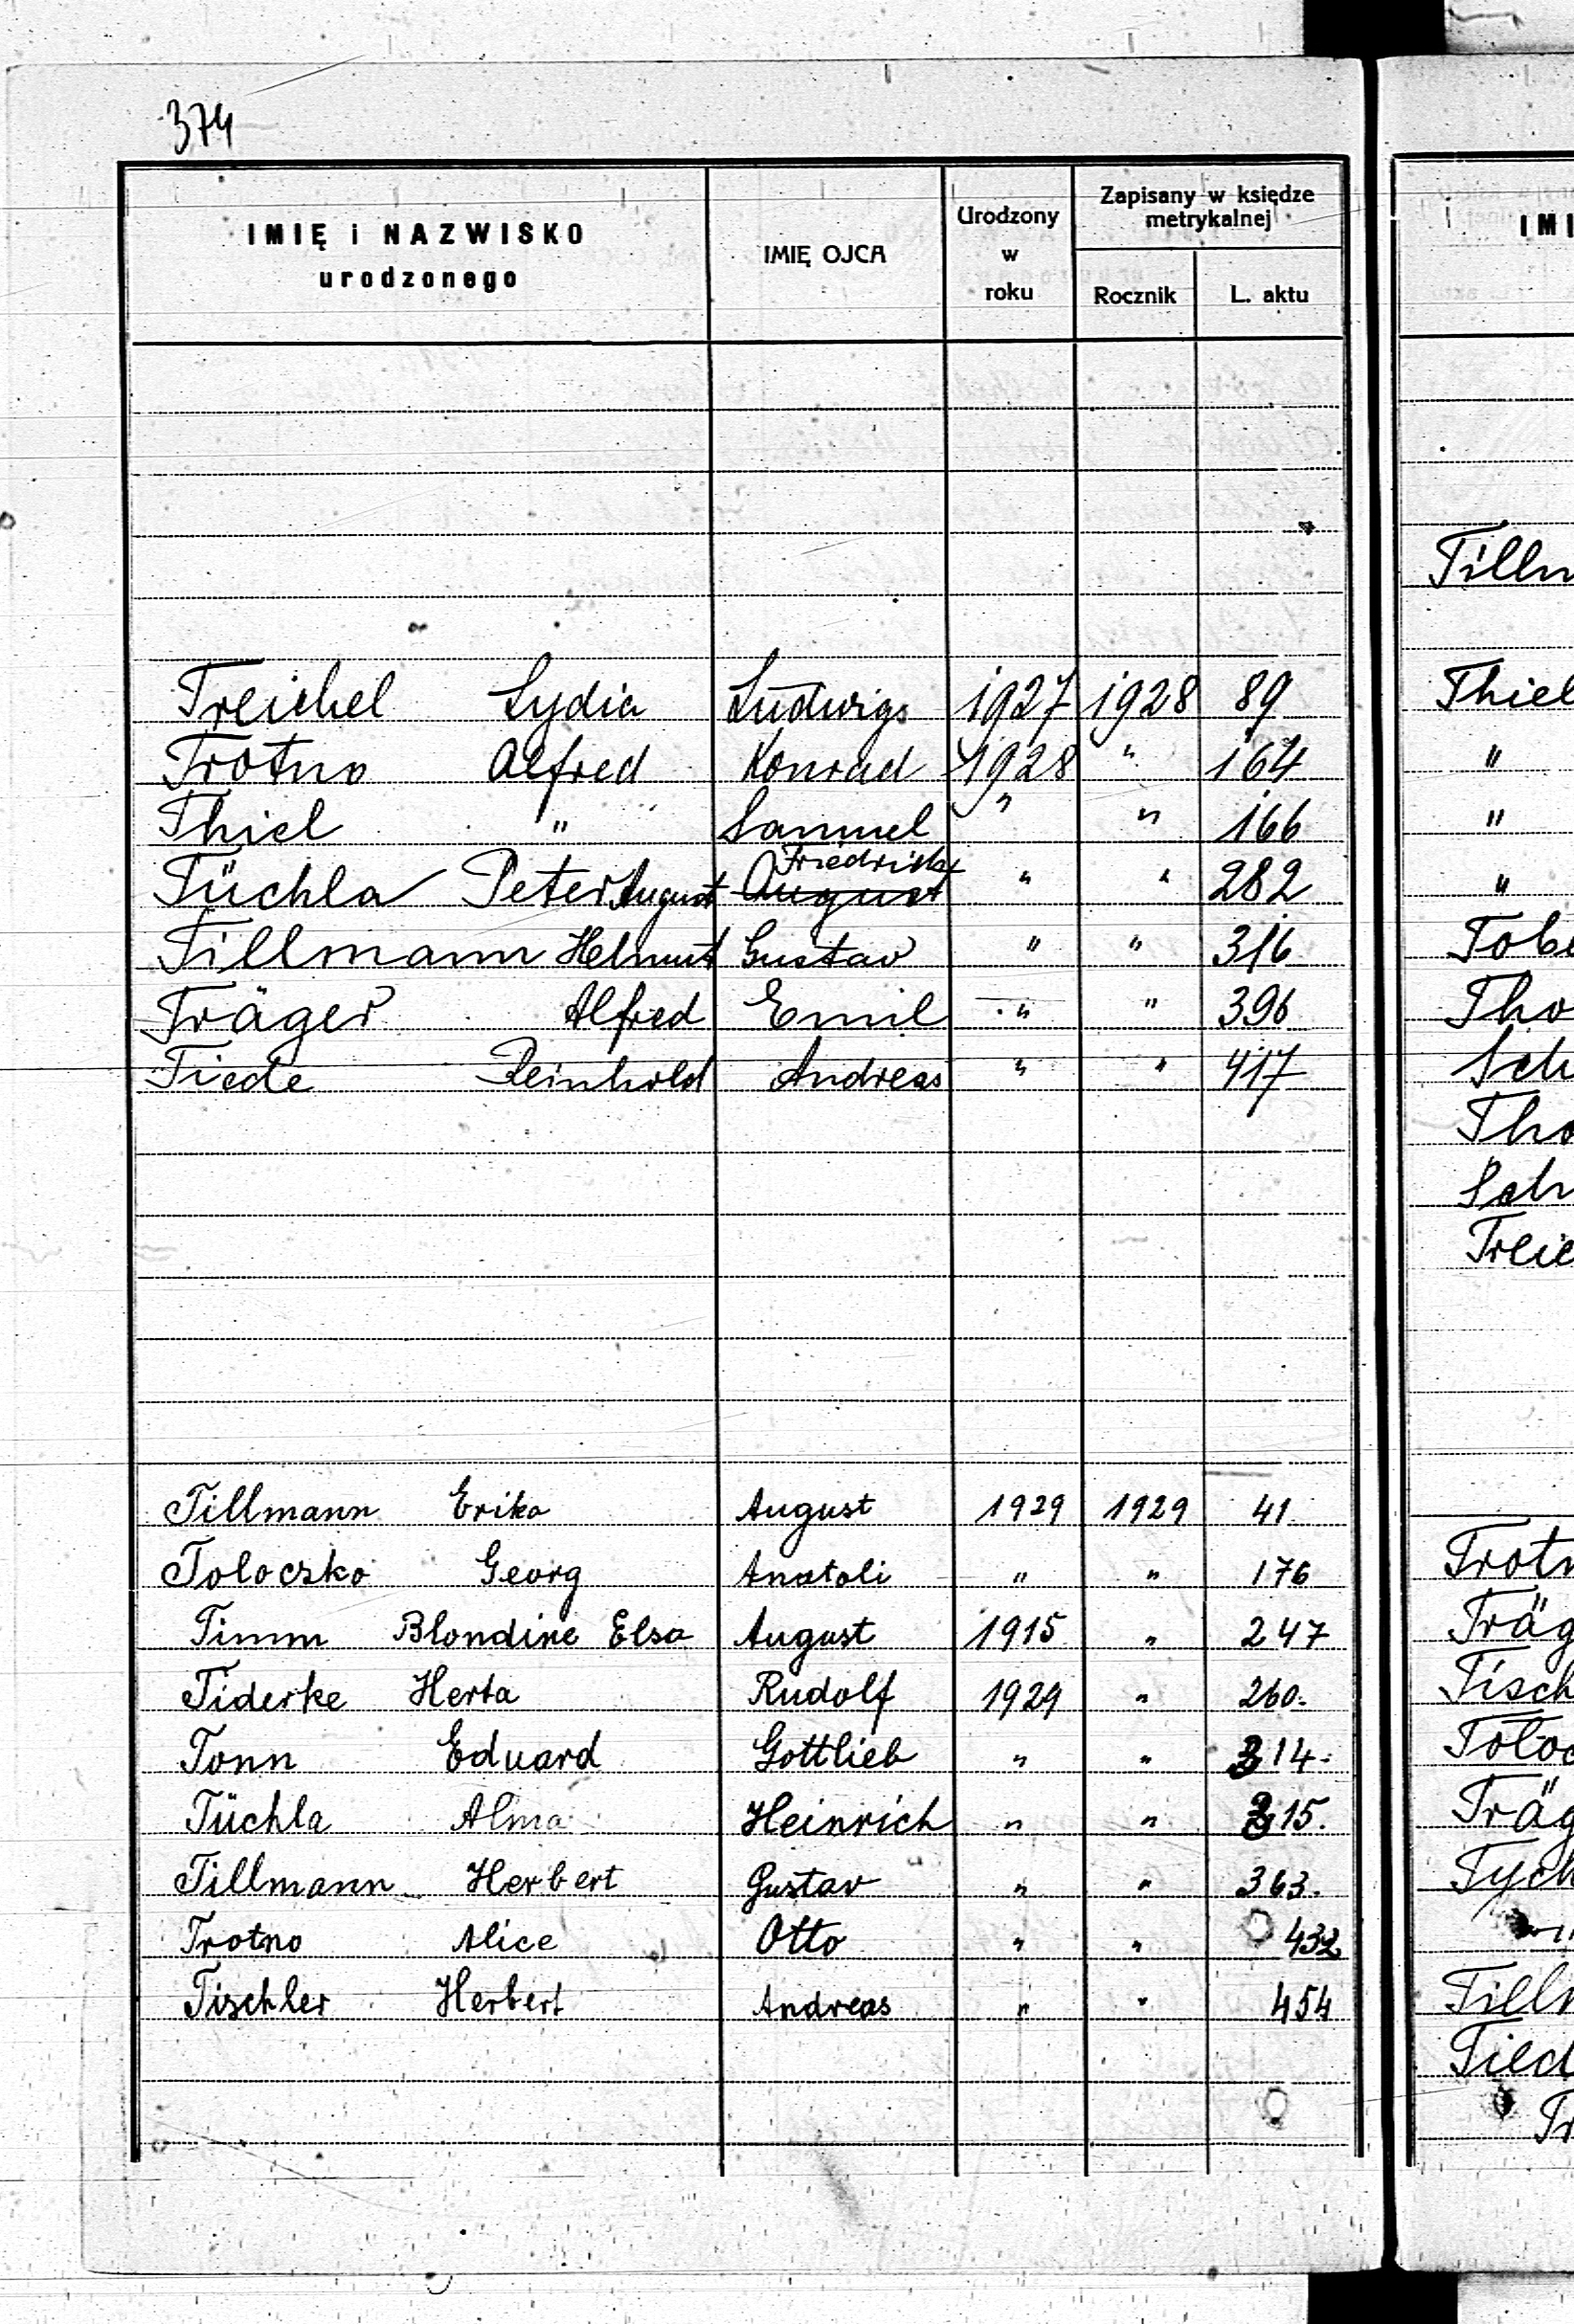 374
IMIĘ i NAZWISKO urodzonego IMIĘ OJCA Urodzony w roku Zapisany w księdze metrykalnej Rocznik L. aktu
IMI
Tillm
Treichel Lydia Ludwig 1927 1928 89
Trotno Alfred Konrad 1928 " 164
Thiel " Samuel " " 166
Friedrich
Tüchla Peter August August " " 282
Tillmann Helmut Gustav " " 316
Träger Alfred Emil " " 396
Tiede Reinhold Andreas " " 417
Tillmann Erika August 1929 1929 41
Toloczko Georg Anatoli " " 176
Timm Blondine Elsa August 1915 " 247
Tiderke Herta Rudolf 1929 " 260.
Tonn Eduard Gottlieb " " 314.
Tüchla Alma Heinrich " " 315.
Tillmann Herbert Gustav " " 363.
Trotno Alice Otto " " 432
Tischler Herbert Andreas " " 454
Thiel
"
"
"
Tobe
Tho
Sch
Tho
Sch
Treic
Trotn
Träg
Tisch
Toloc
Träg
Tych
Tillm
Tied
Tr